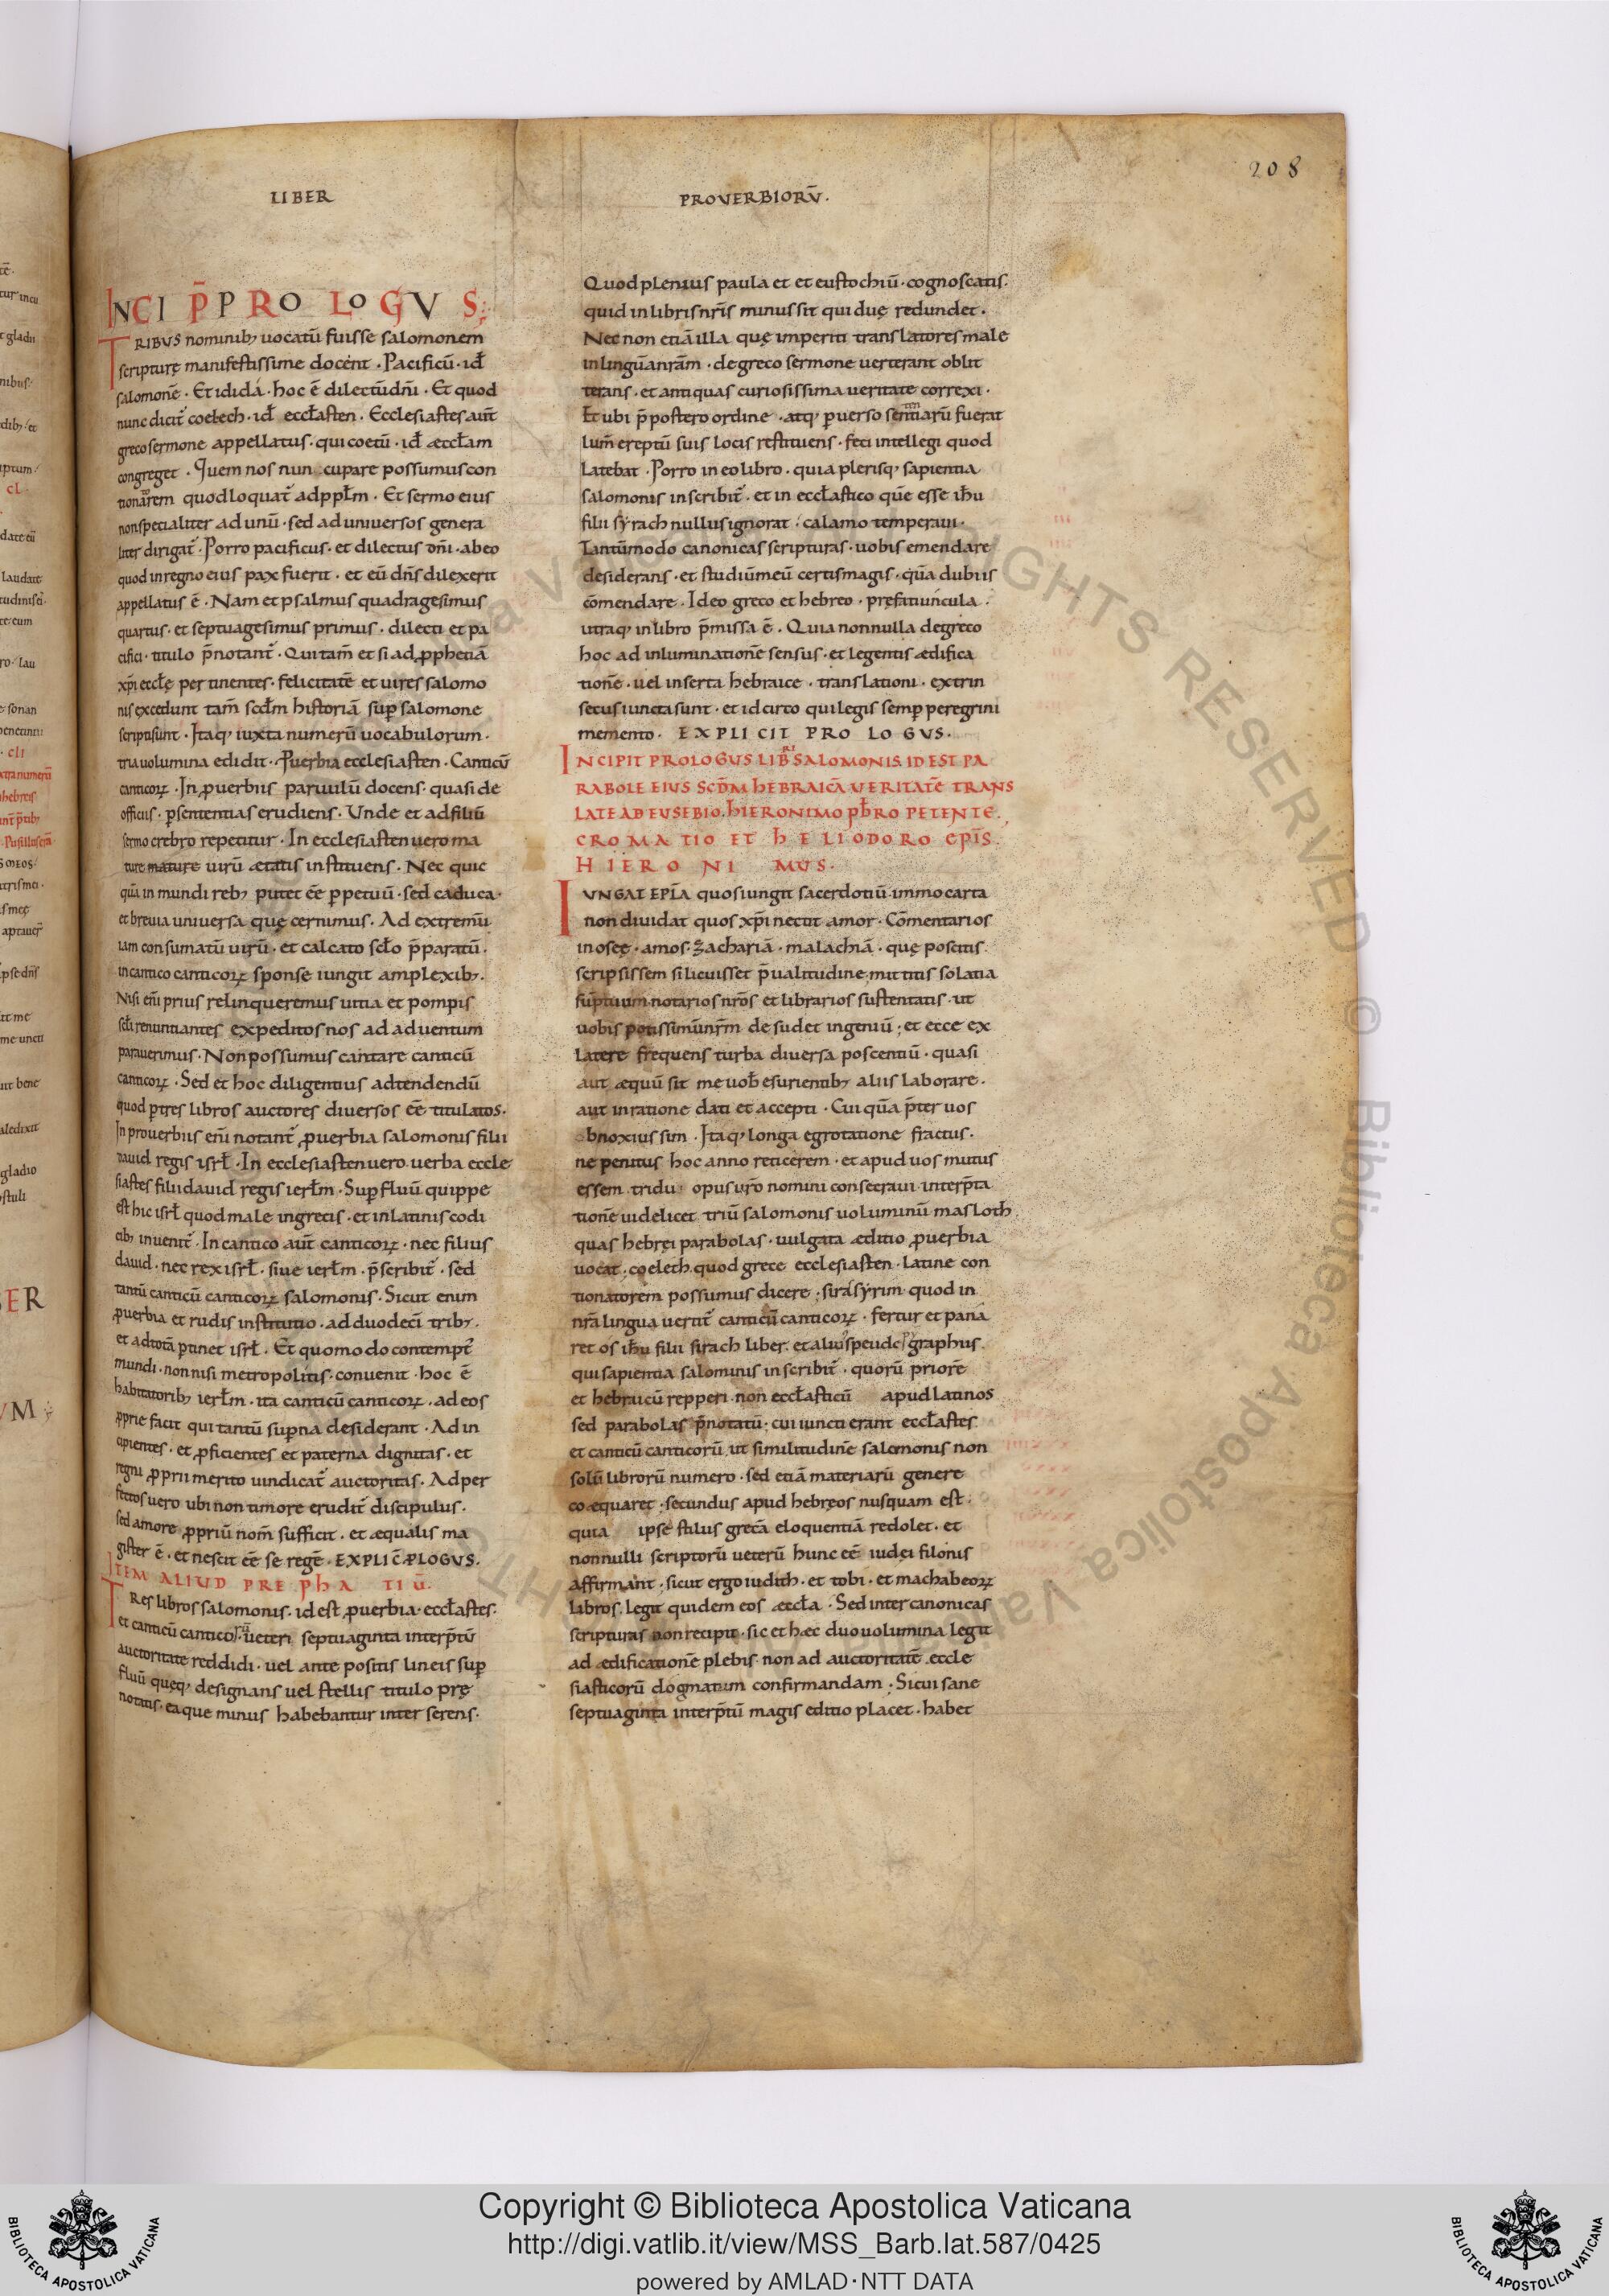 208
LIBER
PROVERBIORŪ.
INCI P̄ PRO LOGVS
TRIBVS nominib; uocatū fuisse salomonem
scripturę manifestissime docent · Pacificū · id̄
salomonē · Et ididá · hoc ē dilectūdn̄i · Et quod
nunc dicit̄ coelech · id̄ eccl̄asten · Ecclesiastes aut̄
greco sermone appellatus · qui coetū · id̄ æccl̄am
congreget · Quem nos nun cupare possumus con
tionarem quod loquat̄ adppl̄m · Et sermo eius
non specialiter ad unū · sed ad uniuersos genera
liter dirigat̄ · Porro pacificus · et dilectus dn̄i · abeo
quod in regno eius pax fuerit · et eū dn̄s dilexerit
appellatus ē · Nam et psalmus quadragesimus
quartus · et septuagesimus primus · dilecti et pa
cifici · titulo p̄notant̄ · Qui tam̄ et si ad ꝓphetiā
xp̄i eccl̄ę pertinentes · felicitatē et uires salomo
nis excedunt tam̄ scd̄m historiā sup̄ salomone
scripti sunt · Itaq; iuxta numerū uocabulorum ·
tria uolumina edidit · Puerbia ecclesiasten · Canticū
canticoꝝ · In ꝓuerbiis paruulū docens · quasi de
officiis · p̄ sententias erudiens · Unde et ad filiū
sermo crebro repetitur · In ecclesiasten uero ma
ture mature uirū ætatis instituens · Nec quic
quā in mundi reb; putet eē ꝑpetuū · sed caduca ·
et breuia uniuersa quę cernimus · Ad extremū
iam consumatū uirū · et calcato scl̄o p̄paratū ·
in cantico canticoꝝ sponse iungit amplexib; ·
Nisi eni prius relinqueremus uitia et pompis
scl̄i renuntiantes expeditos nos ad aduentum
parauerimus · Non possumus cantare canticū
canticoꝝ · Sed et hoc diligentius adtendendū
quod ꝑ tres libros auctores diuersos eē titulatos ·
In prouerbiis eni notant̄ ꝓuerbia salomonis filii
dauid regis isrl̄ · In ecclesiasten uero · uerba eccle
siastes filii dauid regis ierl̄m · Sup̄fluū quippe
est hic isrl̄ quod male in grecis · et in latinis codi
cib; inuenit̄ · In cantico aut̄ canticoꝝ · nec filius
dauid · nec rex isrl̄ · siue ierl̄m · p̄scribit̄ · sed
tantū canticū canticoꝝ salomonis · Sicut enim
ꝓuerbia et rudis institutio · ad duodeci trib; ·
et ad totā ꝑtinet isrl̄ · Et quomodo contempt̄
mundi · non nisi metropolitis · conuenit · hoc ē
habitatorib; ierl̄m · ita canticū canticoꝝ · ad eos
ꝓprie facit qui tantū sup̄na desiderant · Ad in
cipientes · et ꝓficientes et paterna dignitas · et
regni ꝓprii merito uindicat̄ auctoritas · Ad per
fectos uero ubi non timore erudit̄ discipulus ·
sed amore ꝓpriū nom̄ sufficit · et æqualis ma
gister ē · et nescit eē se regē · EXPLIC̄ PLOGVS.
ITEM ALIVD PREPhA TIŪ.
TRes libros salomonis · id est ꝓuerbia · eccl̄astes ·
et canticū canticoꝝ · ueteri septuaginta interp̄tū
auctoritate reddidi · uel ante positis lineis sup̄
fluū quęq; designans uel stellis titulo pre
notatis · ea que minus habebantur inter serens ·
Quod plenius paula et et eustochiū · cognoscatis ·
quid in libris nr̄is minus sit qui duę redundet ·
Nec non etiā illa quę imperiti translatores male
in linguā nrām · de greco sermone uerterant oblit
terans · et antiquas curiosissima ueritate correxi ·
Et ubi p̄postero ordine · atq; ꝑuerso sententiarū fuerat
lum̄ ereptū suis locis restituens · feci intellegi quod
latebat · Porro in eo libro · quia plerisq; sapientia
salomonis inscribit̄ · et in eccl̄astico quē esse ih̄u
filii sýrach nullus ignorat · calamo temperaui ·
Tantūmodo canonicas scripturas · uobis emendare
desiderans · et studiū meū certis magis · quā dubiis
cōmendare · Ideo greco et hebreo · prefatiuncula ·
utraq; in libro p̄missa ē · Quia nonnulla degreco
hoc ad inluminationē sensus · et legentis ædifica
tionē · uel inserta hebraice · translationi · extrin
secus iuncta sunt · et idcirco qui legis semp̄ peregrini
memento · EXPLI CIT PRO LO GVS.
INCIPIT PROLOGVS LIBRI SALOMONIS ID EST PA
RABOLE EIVS SCD̄M hEBRAICĀ VERITATĒ TRANS
LATE AB EVSEBIO. hIERONIMO pb̄RO PETENTE.
CROMATIO ET hELIODORO EPĪS.
HIERONIMVS.
IVNGAT EPĪA quos iungit sacerdotiū · immo carta
non diuidat quos xp̄i nectit amor · Cōmentarios
in osęę · amos · zachariā · malachiā · quę poscitis ·
scripsissem si licuisset p̄ualitudine · mittitis solatia
sūptuum · notarios nr̄os et librarios sustentatis · ut
uobis potissimū nrm̄ desudet ingeniū ; et ecce ex
latere frequens turba diuersa poscentiū · quasi
aut æquū sit me uob̄ esurientib; aliis laborare ·
aut in ratione dati et accepti · Cui quā p̄ter uos
obnoxius sim · Itaq; longa egrotatione fractus ·
ne penitus hoc anno reticerem · et apud uos mutus
essem · tridui opus ur̄o nomini consecraui · interp̄ta
tionē uidelicet triū salomonis uoluminū masloth
quas hebręi parabolas · uulgata æditio ꝓuerbia
uocat · coeleth · quod grece ecclesiasten · latine con
tionatorem possumus dicere ; sirasyrim · quod in
nrā lingua uertit̄ canticū canticoꝝ · fertur et pana
ret os ih̄u filii sirach liber · et alius pseudographus
qui sapientia salominis inscribit̄ · quorū priorē
et hebraicū repperi · non eccl̄asticū apud latinos
sed parabolas p̄notatū · cui iuncti erant eccl̄astes
et canticū canticorū ut similitudinē salomonis non
solū librorū numero · sed etiā materiarū genere
coæquaret · secundus apud hebręos nusquam est ·
quia ipse stilus grecā eloquentiā redolet · et
nonnulli scriptorū ueterū hunc eē iudei filonis
affirmant · sicut ergo iudith · et tobi · et machabeoꝝ
libros · legit quidem eos æccl̄a · Sed inter canonicas
scripturas non recipit · sic et hæc duo uolumina legit
ad ædificationē plebis · non ad auctoritatē eccle
siasticorū dogmatum confirmandam · Sicui sane
septuaginta interp̄tū magis editio placet · habet
Copyright © Biblioteca Apostolica Vaticana
http://digi.vatlib.it/view/MSS_Barb.lat.587/0425
powered by AMLAD·NTT DATA